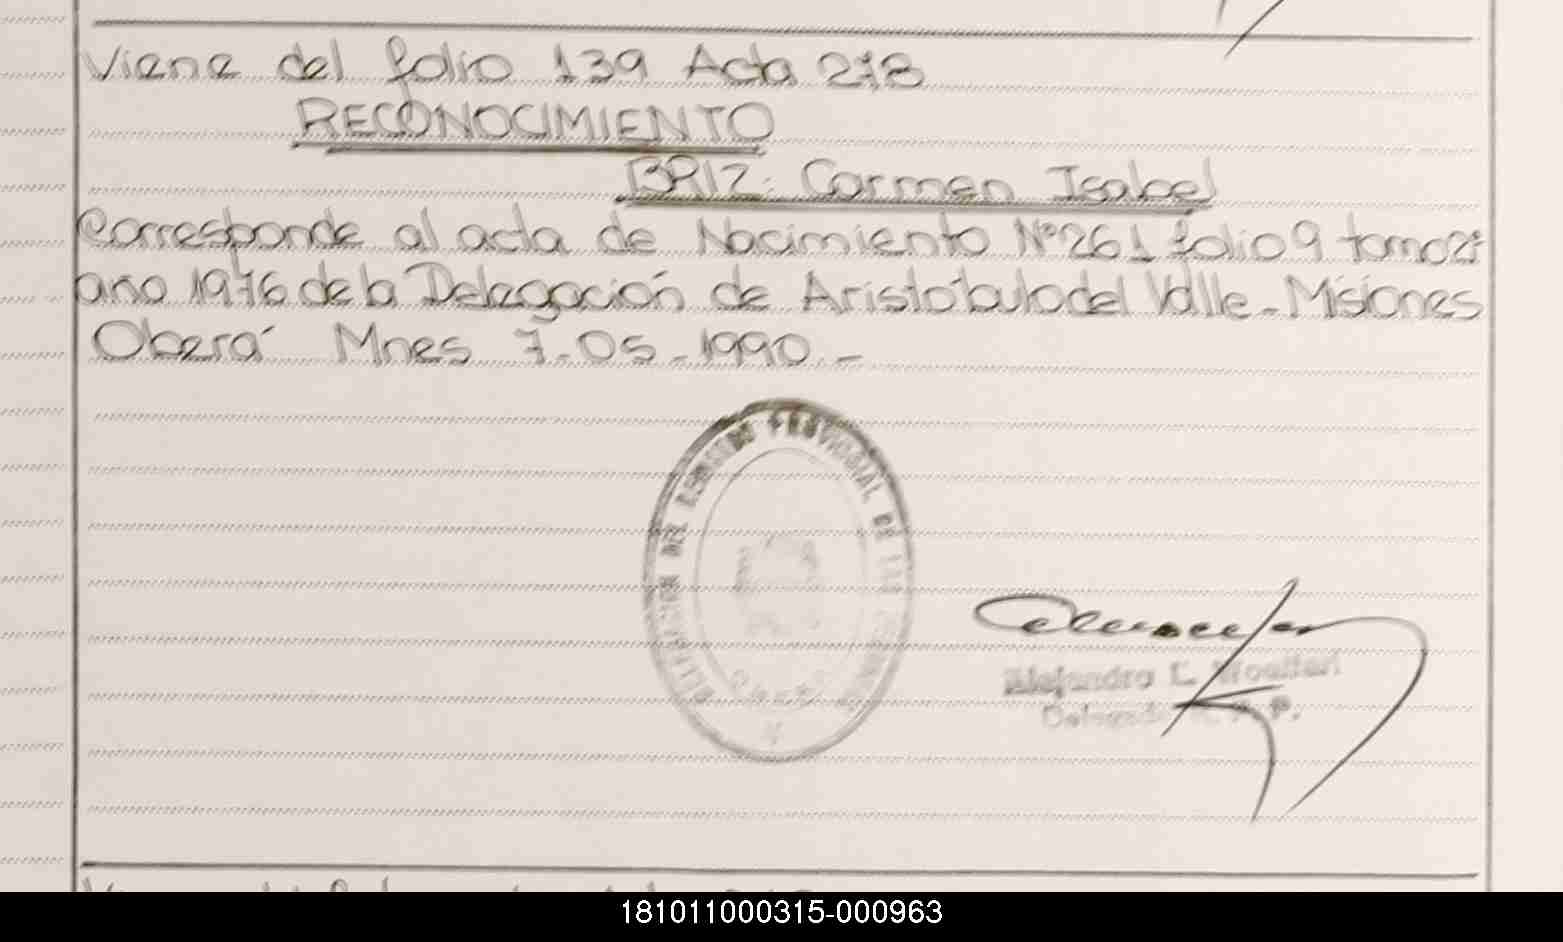 Viene del folio 139 Acta 278
RECONOCIMIENTO
BRIZ: Carmen Isabel
Corresponde al acta de Nacimiento Nº 261 folio 9 tomo 2º
año 1976 de la Delegación de Aristóbulo del Valle - Misiones
Oberá Mnes 7-05-1990.-
PROVINCIAL DE LAS
DEL
Alejandro L.
Delegado R. P. P.
181011000315-000963